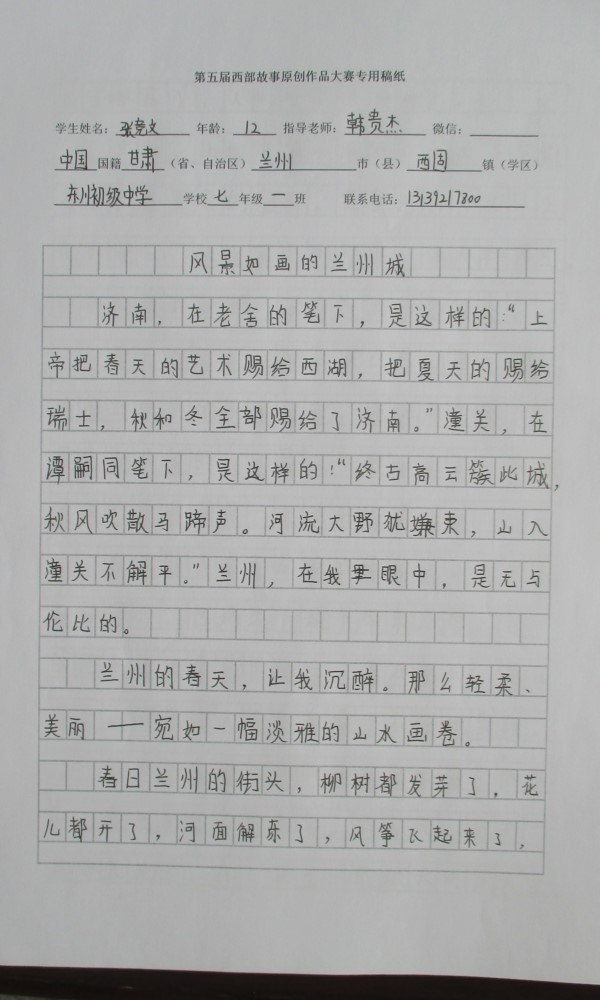 第五届西部故事原创作品大赛专用稿纸
学生姓名：张竞文 年龄：12 指导老师：韩贵杰 微信：
中国国籍甘肃（省、自治区）兰州市（县）西固镇（学区）
东川初级中学学校七年级一班 联系电话：13139217800
风景如画的兰州城
济南，在老舍的笔下，是这样的：“上
帝把春天的艺术赐给西湖，把夏天的赐给
瑞士，秋和冬全部赐给了济南。”潼关，在
潭嗣同笔下，是这样的：“终古高云簇此城，
秋风吹散马蹄声。河流大野犹嫌束，山入
潼关不解平。”兰州，在我眼中，是无与
伦比的。
兰州的春天，让我沉醉。那么轻柔、
美丽——宛如一幅淡雅的山水画卷。
春日兰州的街头，柳树都发芽了，花
儿都开了，河面解冻了，风筝飞起来了，